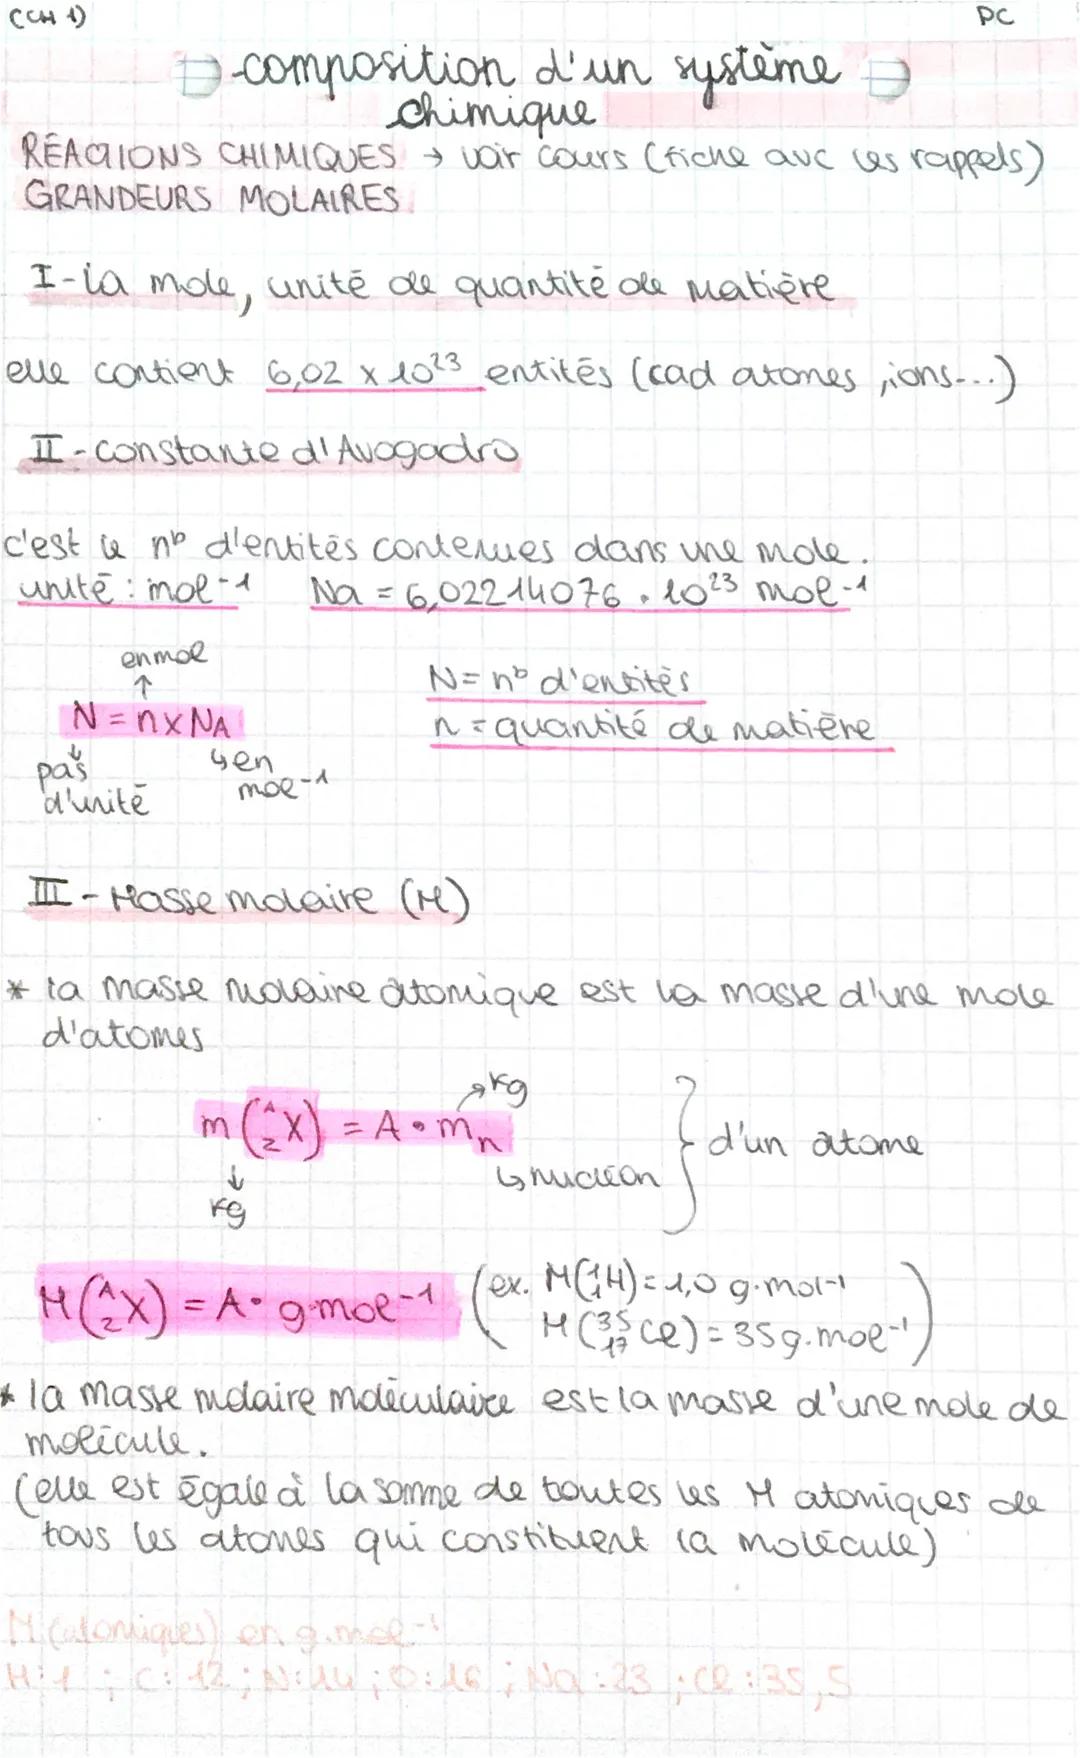 (CH 1) PC
composition d'un système
chimique
RÉACTIONS CHIMIQUES → voir cours (fiche avc les rappels)
GRANDEURS MOLAIRES
I - la mole, unité de quantité de matière
elle contient 6,02 x 10²³ entités (cad atomes, ions...)
II - constante d'Avogadro
c'est le nᵇ d'entités contenues dans une mole.
unité : mol⁻¹ Na = 6,02214076 . 10²³ mol⁻¹
en mol
↑
N = n x NA
↓
pas d'unité
↳ en mol⁻¹
N = nᵇ d'entités
n = quantité de matière
III - Masse molaire (M)
* la masse molaire atomique est la masse d'une mole
d'atomes
↗ kg
m (ᴬ_Z X) = A • mₙ } d'un atome
↓ ↳ nucléon
kg
M (ᴬ_Z X) = A • g·mol⁻¹ (ex. M(¹₁H) = 1,0 g·mol⁻¹
M(³⁵₁₇Cl) = 35 g.mol⁻¹)
* la masse molaire moléculaire est la masse d'une mole de
molécule.
(elle est égale à la somme de toutes les M atomiques de
tous les atomes qui constituent la molécule)
M (atomiques) en g.mol⁻¹
H : 1 ; C : 12 ; N : 14 ; O : 16 ; Na : 23 ; Cl : 35,5